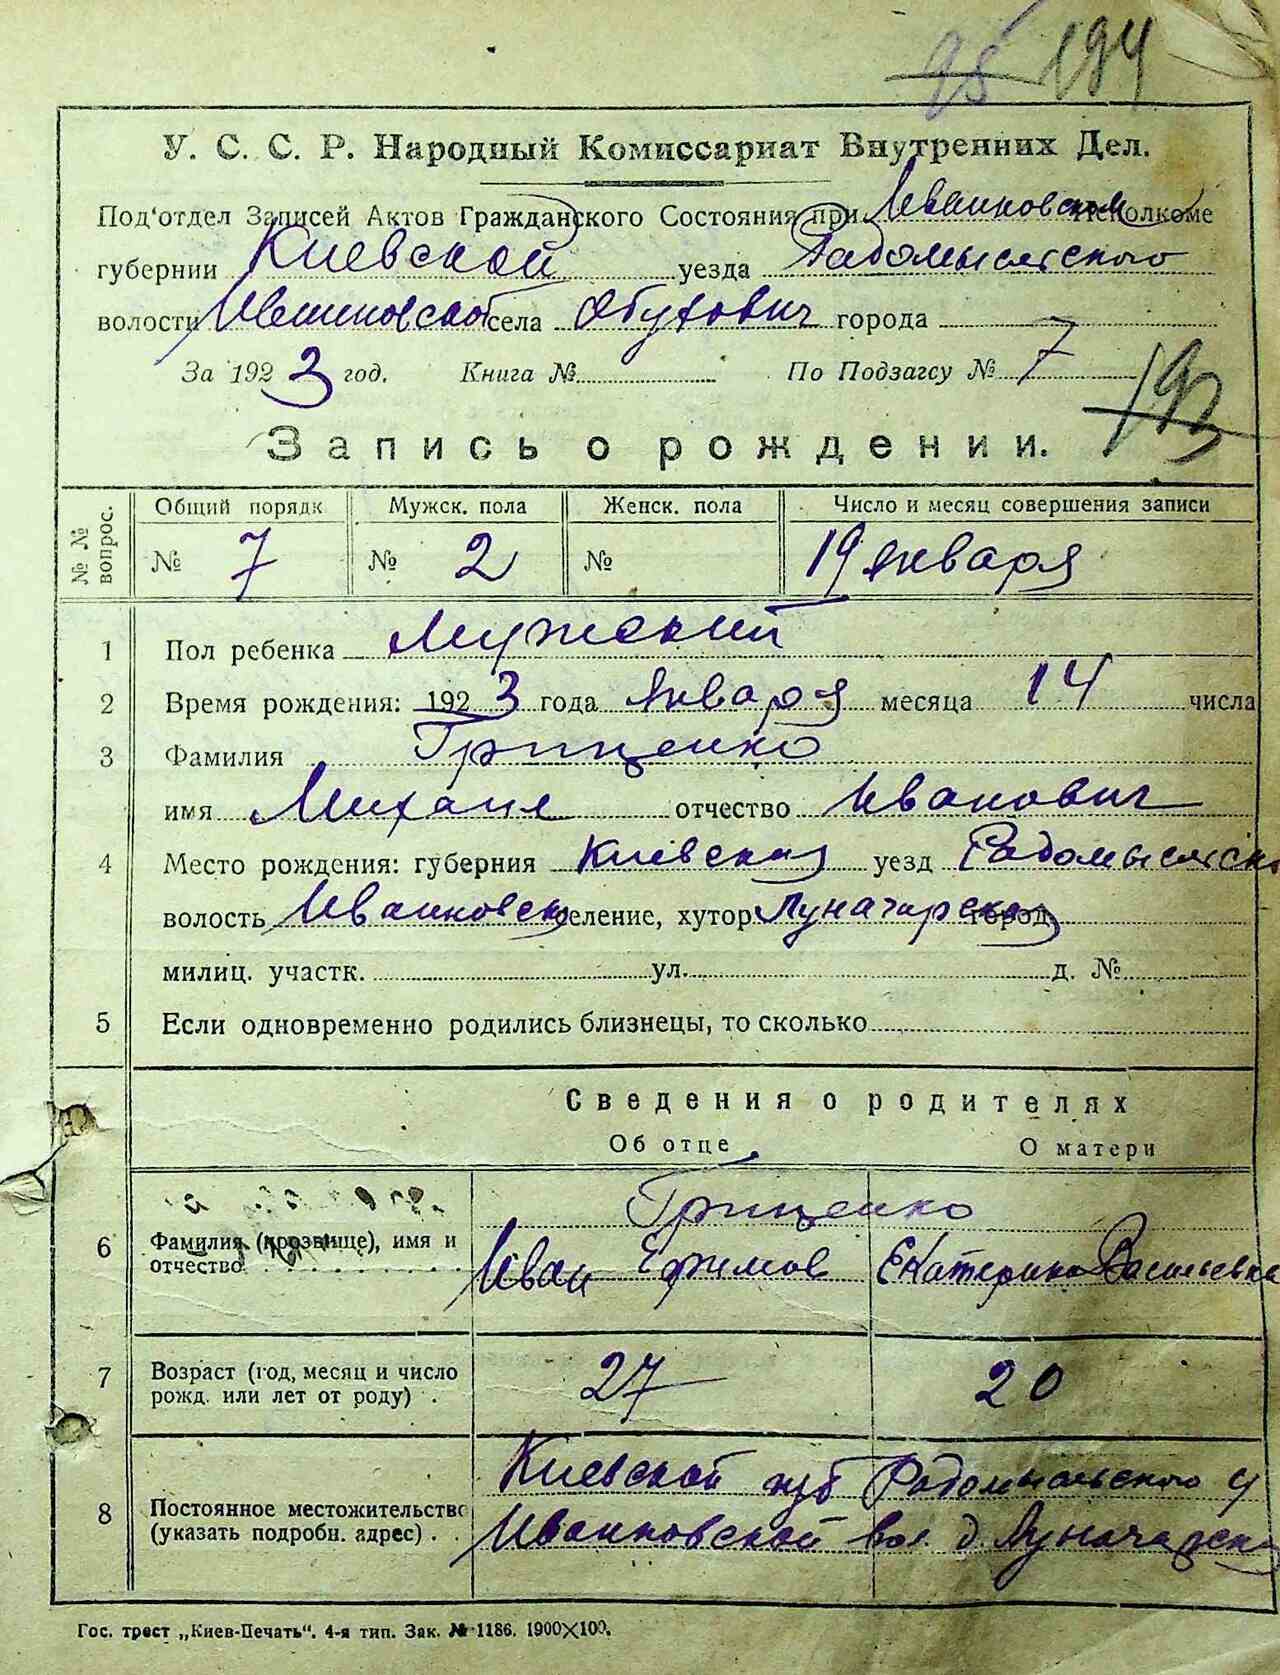 95 194
У. С. С. Р. Народный Комиссариат Внутренних Дел.
Под'отдел Записей Актов Гражданского Состояния при Иванковском исполкоме
губернии Киевской уезда Радомысльского
волости Иванковской села Обухович города
За 1923 год. Книга № По Подзагсу № 7
193
Запись о рождении.
№ № вопрос.
Общий порядк Мужск. пола Женск. пола Число и месяц совершения записи
№ 7 № 2 № 19 января
1 Пол ребенка Мужеский
2 Время рождения: 1923 года января месяца 14 числа
3 Фамилия Гриценко
имя Михаил отчество Иванович
4 Место рождения: губерния Киевская уезд Радомысльск
волость Иванковск селение, хутор Луначарска город
милиц. участк. ул. д. №
5 Если одновременно родились близнецы, то сколько
Сведения о родителях
Об отце О матери
Гриценко
6 Фамилия (прозвище), имя и отчество Иван Ефимов Екатерина Васильевна
7 Возраст (год, месяц и число рожд. или лет от роду) 27 20
Киевской губ Радомысльского у
8 Постоянное местожительство (указать подробн. адрес) Иванковской вол. д. Луначарска
Гос. трест „Киев-Печать". 4-я тип. Зак. № 1186. 1900×100.